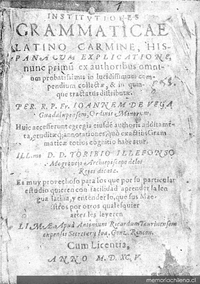 INSTITVTIONES
GRAMMATICAE
LATINO CARMINE, HIS-
PANA CVM EXPLICATIONE,
nunc primũ ex authoribus omniũ
probatissimis in lucidissimum com-
pendium collectæ, & in quin-
que tractatus distributæ.
PER. R. P. Fr. IOANNEM DE VEGA
Ordinis Minorum.
Huic accesserunt egregia eiusdē authoris
eruditæ annotationes, quo
maticæ totius cognitio habeatur.
ILL.mo D. D. TORIBIO ILLEFONSO
Mogrovejo Archiepiscopo de los
Reyes dicata.
Es muy provechoso para los que por su particular
estudio quieren con facilidad aprender la len
gua latina, y entender lo que sus Mae-
stros por otros qualesquier
artes les leyeren
LIMAE. Apud Antonium Ricardum
Cum Licentia,
ANNO M D. XC V.
memoriachilena.cl